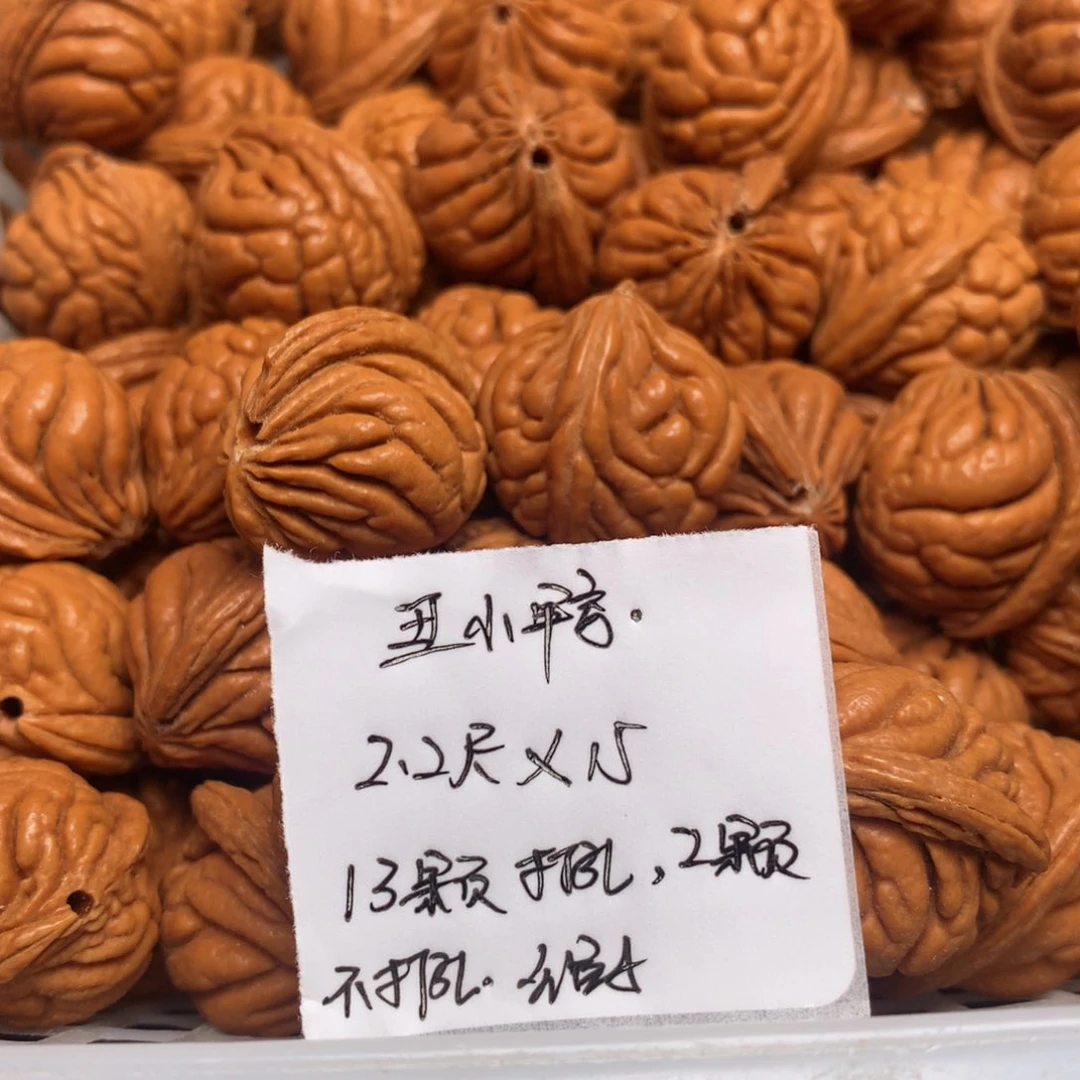 丑小鸭.
2.2尺×15
13颗打孔,2颗
不打孔.